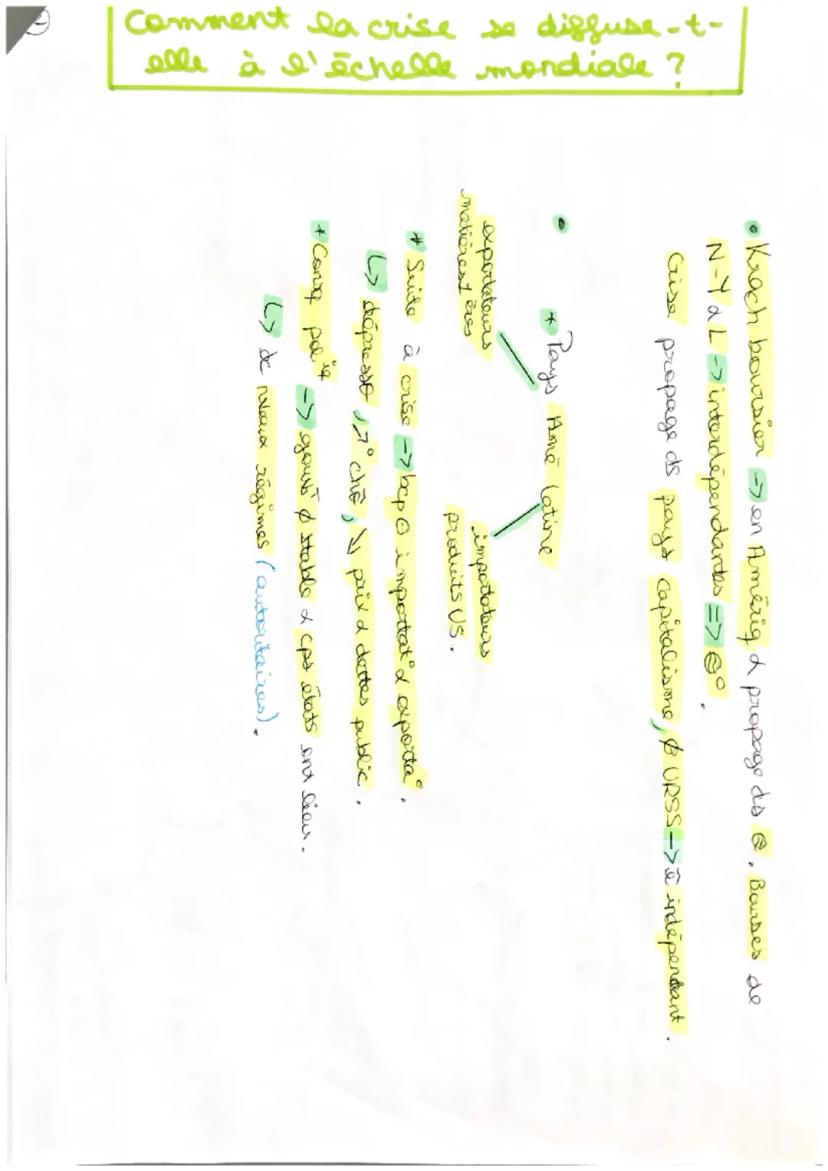 Comment la crise se diffuse-t-
elle à l'échelle mondiale ?
• Krach boursier -> en Amériq & propage ds @. Bourses de
N-Y & L -> interdépendantes => @°.
Crise propage ds pays capitalisme, ∅ URSS -> ê indépendant.
•
* Pays Amé latine
exportateurs
matières 1ères
importateurs
produits US.
* Suite à crise -> bcp ⊖ importat° & exporta°.
↳ dépress°, ↗° chô, ↘ prix & dettes public.
* Conq politiq -> gouvt ∅ stable & cps états ont lieu.
↳ de nveaux régimes (autoritaires).